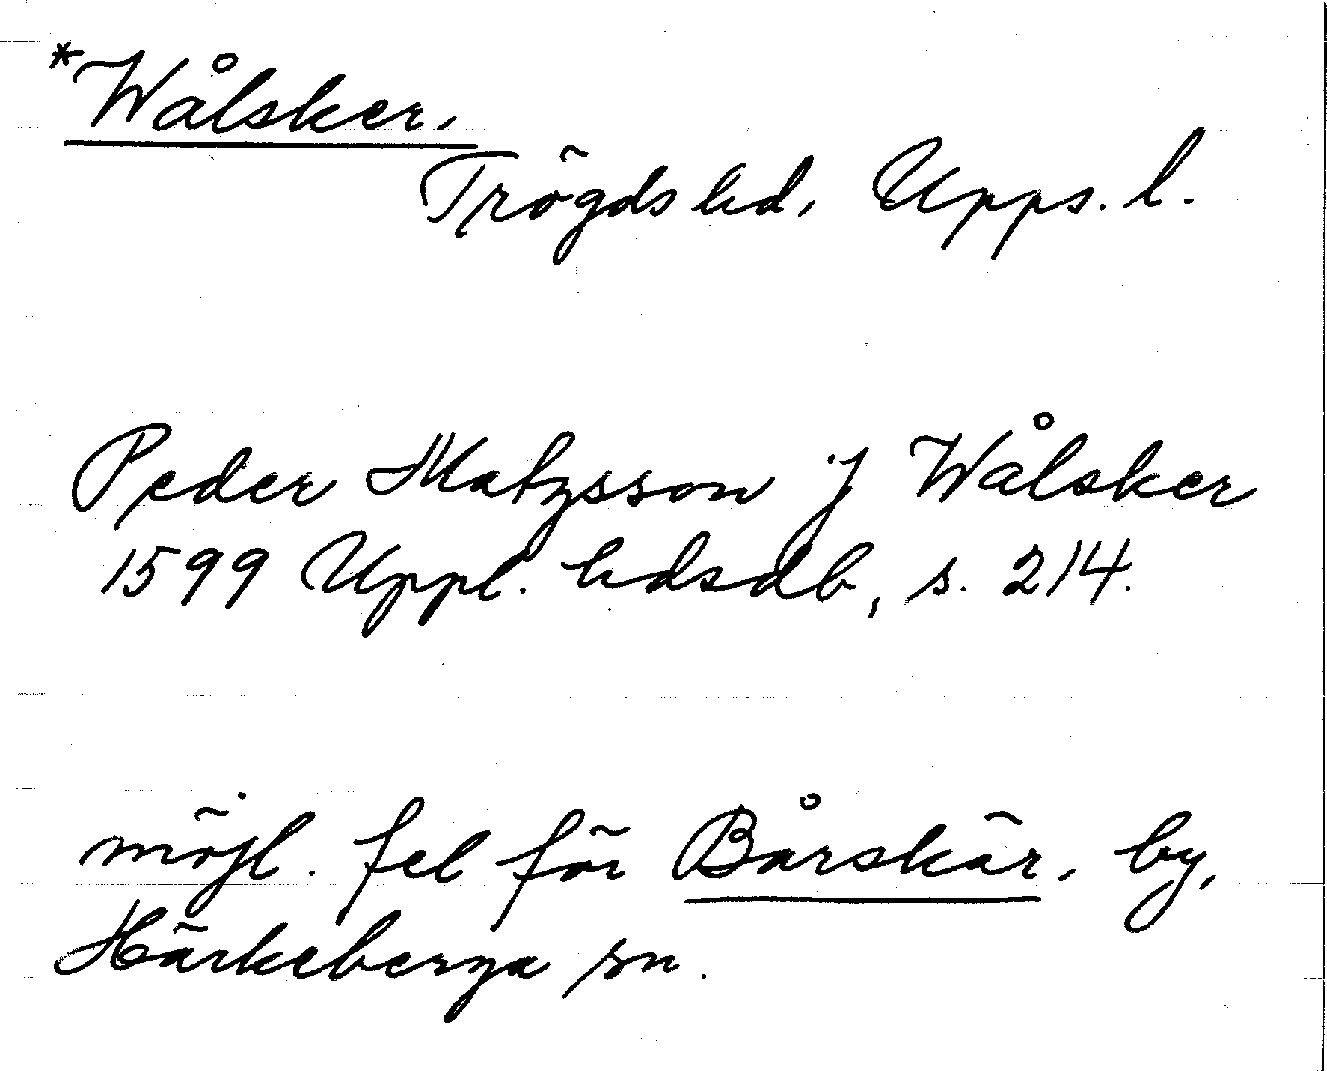 *Wålsker.
Trögds hd, Upps. l.
Peder Matzsson j Wålsker
1599 Uppl. hdsdb, s. 214.
möjl. fel för Bårskär, by,
Härkeberga sn.